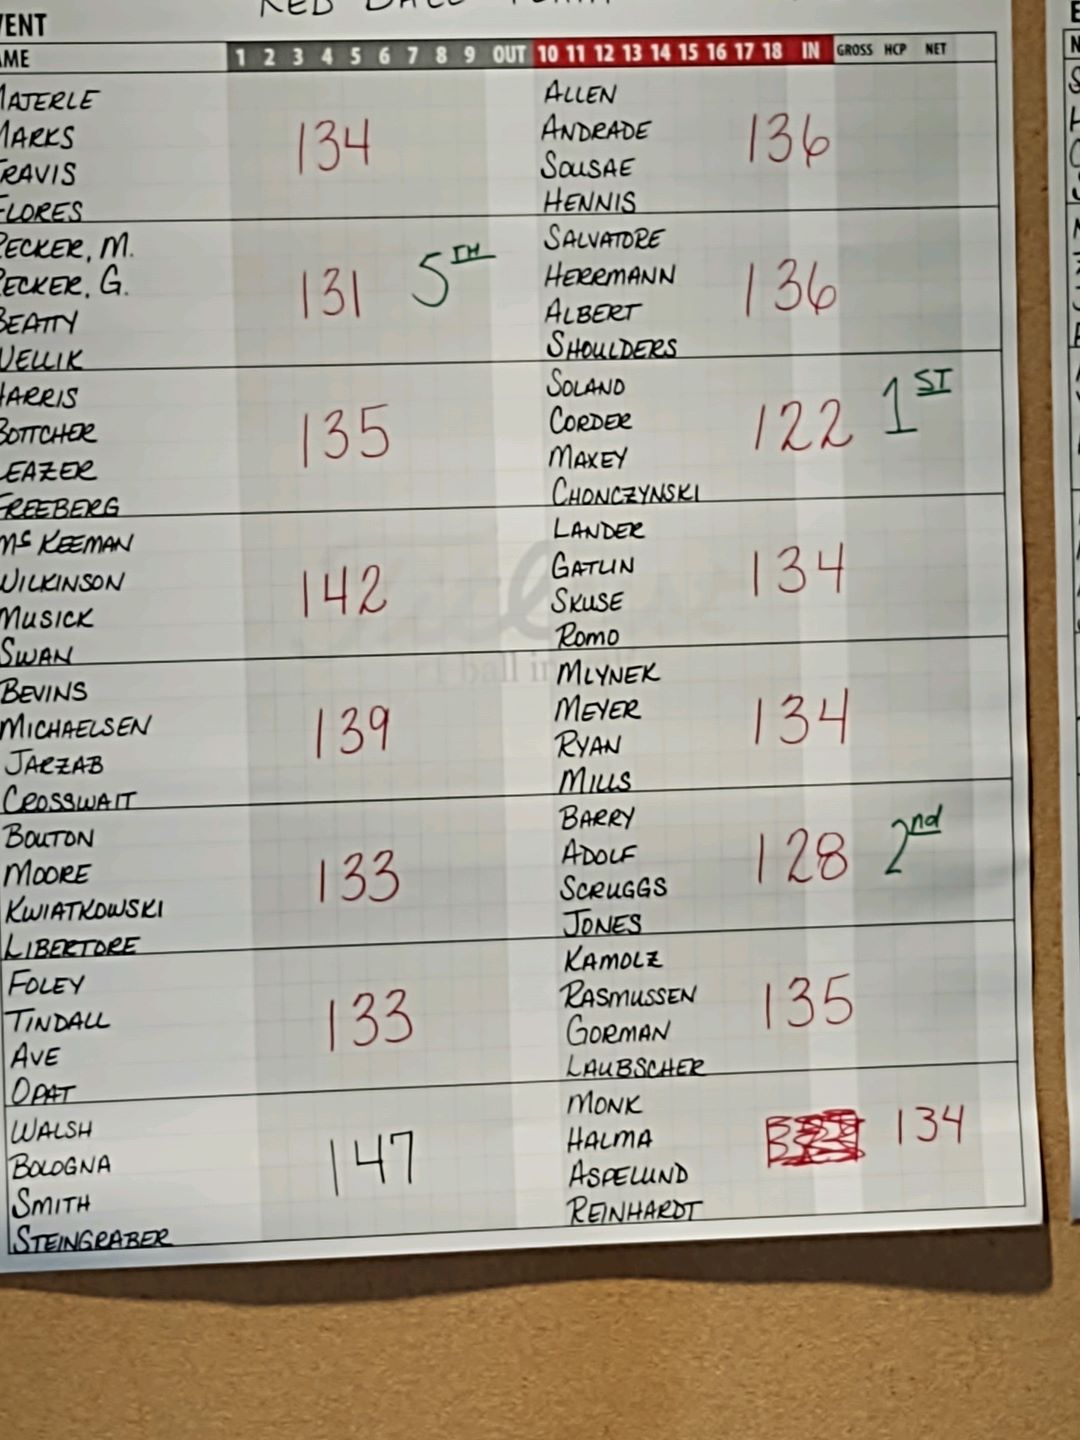 RED BALL
VENT
AME 1 2 3 4 5 6 7 8 9 OUT 10 11 12 13 14 15 16 17 18 IN GROSS HCP NET
MAJERLE
MARKS
TRAVIS
FLORES
134
ALLEN
ANDRADE
SOUSAE
HENNIS
136
RECKER, M.
RECKER, G.
BEATTY
VELLIK
131 5TH
SALVATORE
HERRMANN
ALBERT
SHOULDERS
136
HARRIS
BOTTCHER
LEAZER
FREEBERG
135
SOLANO
CORDER
MAXEY
CHONCZYNSKI
122 1ST
McKEEMAN
WILKINSON
MUSICK
SWAN
142
LANDER
GATLIN
SKUSE
ROMO
134
BEVINS
MICHAELSEN
JARZAB
CROSSWAIT
139
MLYNEK
MEYER
RYAN
MILLS
134
BOUTON
MOORE
KWIATKOWSKI
LIBERTORE
133
BARRY
ADOLF
SCRUGGS
JONES
128 2nd
FOLEY
TINDALL
AVE
OPAT
133
KAMOLZ
RASMUSSEN
GORMAN
LAUBSCHER
135
WALSH
BOLOGNA
SMITH
STEINGRABER
147
MONK
HALMA
ASPELUND
REINHARDT
134